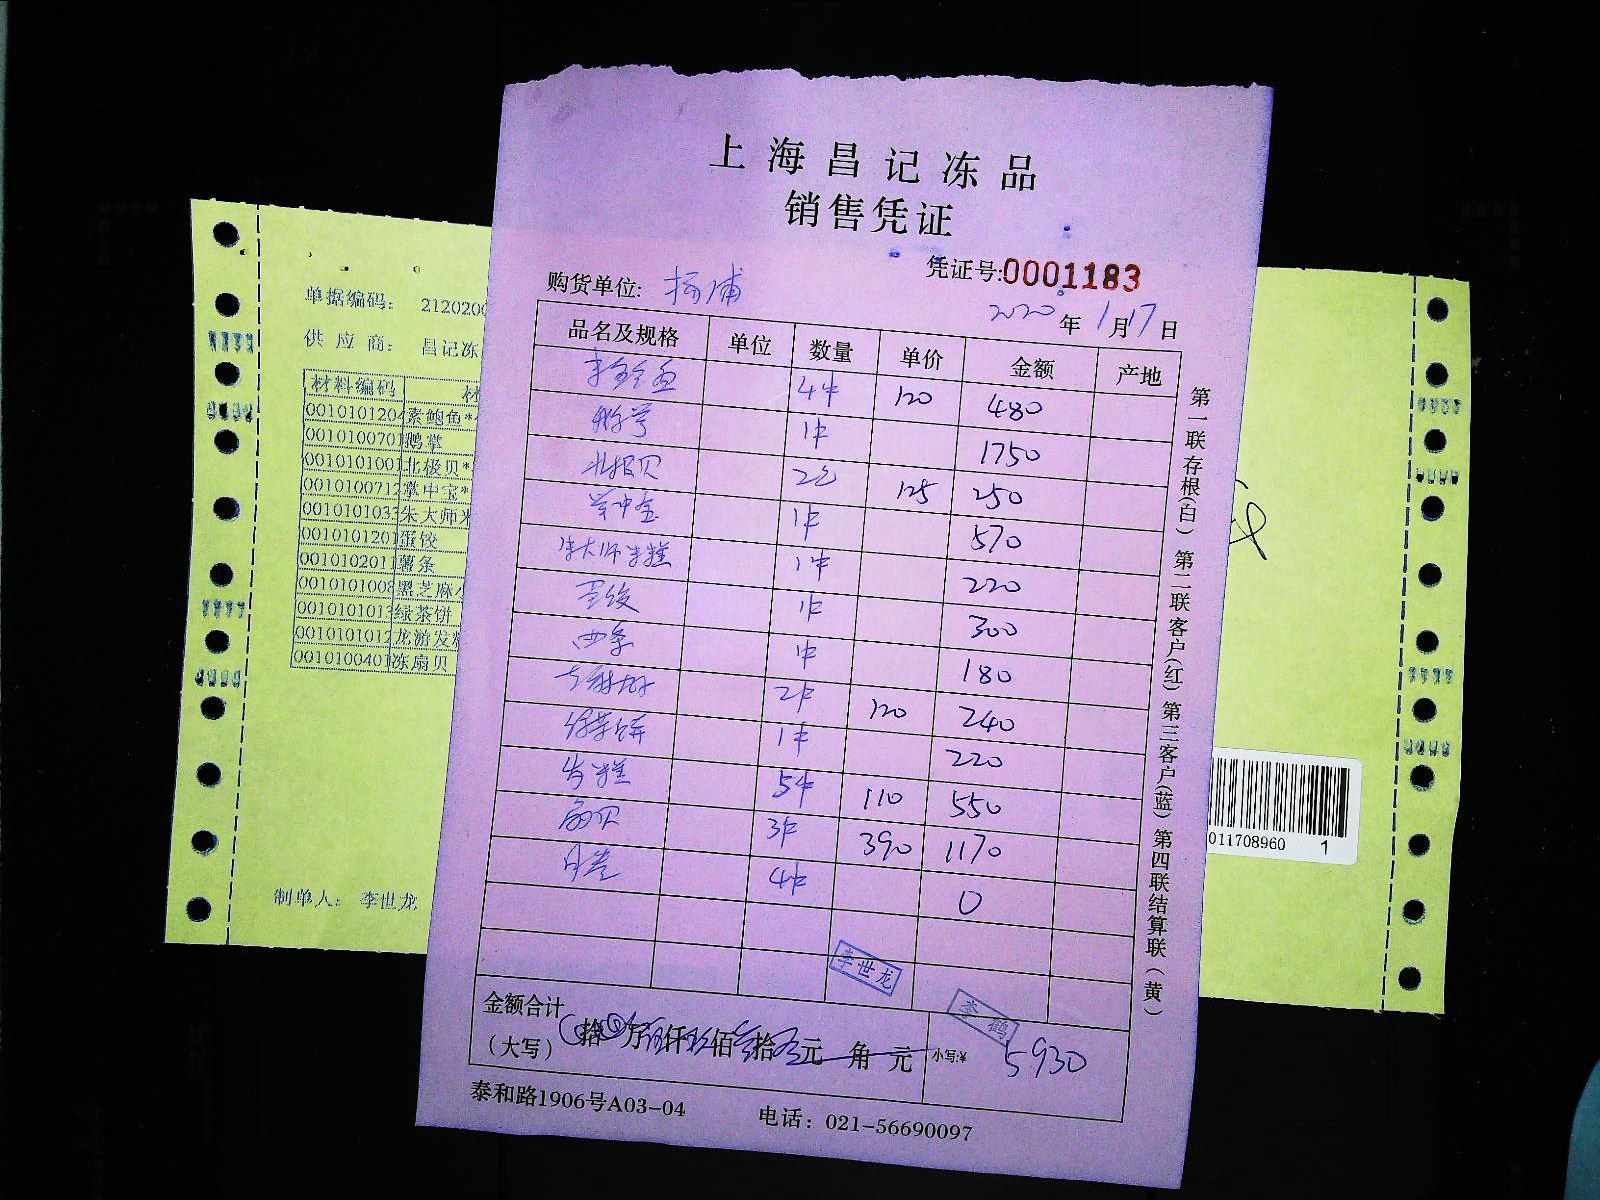 上海昌记冻品
销售凭证
凭证号:0001183
购货单位: 杨浦
2020年1月17日
品名及规格 单位 数量 单价 金额 产地
4件 120 480
1件 1750
北极贝 2包 125 250
掌中宝 1件 570
朱大师米糕 1件 220
蛋饺 1件 300
1件 180
2件 120 240
绿茶饼 1件 220
发糕 5件 110 550
扇贝 3件 390 1170
4件 0
李世龙
李鹤
金额合计
(大写) 拾 万伍仟玖佰叁拾 元 角 元 小写:¥ 5930
泰和路1906号A03-04 电话：021-56690097
第一联存根(白) 第二联客户(红) 第三客户(蓝) 第四联结算联(黄)
单据编码： 212020
供应商： 昌记冻
材料编码 材
001010120 素鲍鱼*
001010070 鹅掌
001010100 北极贝*
001010071 掌中宝*
001010103 朱大师米
001010120 蛋饺
001010201 薯条
001010100 黑芝麻
001010101 绿茶饼
001010101 龙游发糕
001010040 冻扇贝
制单人： 李世龙
011708960 1